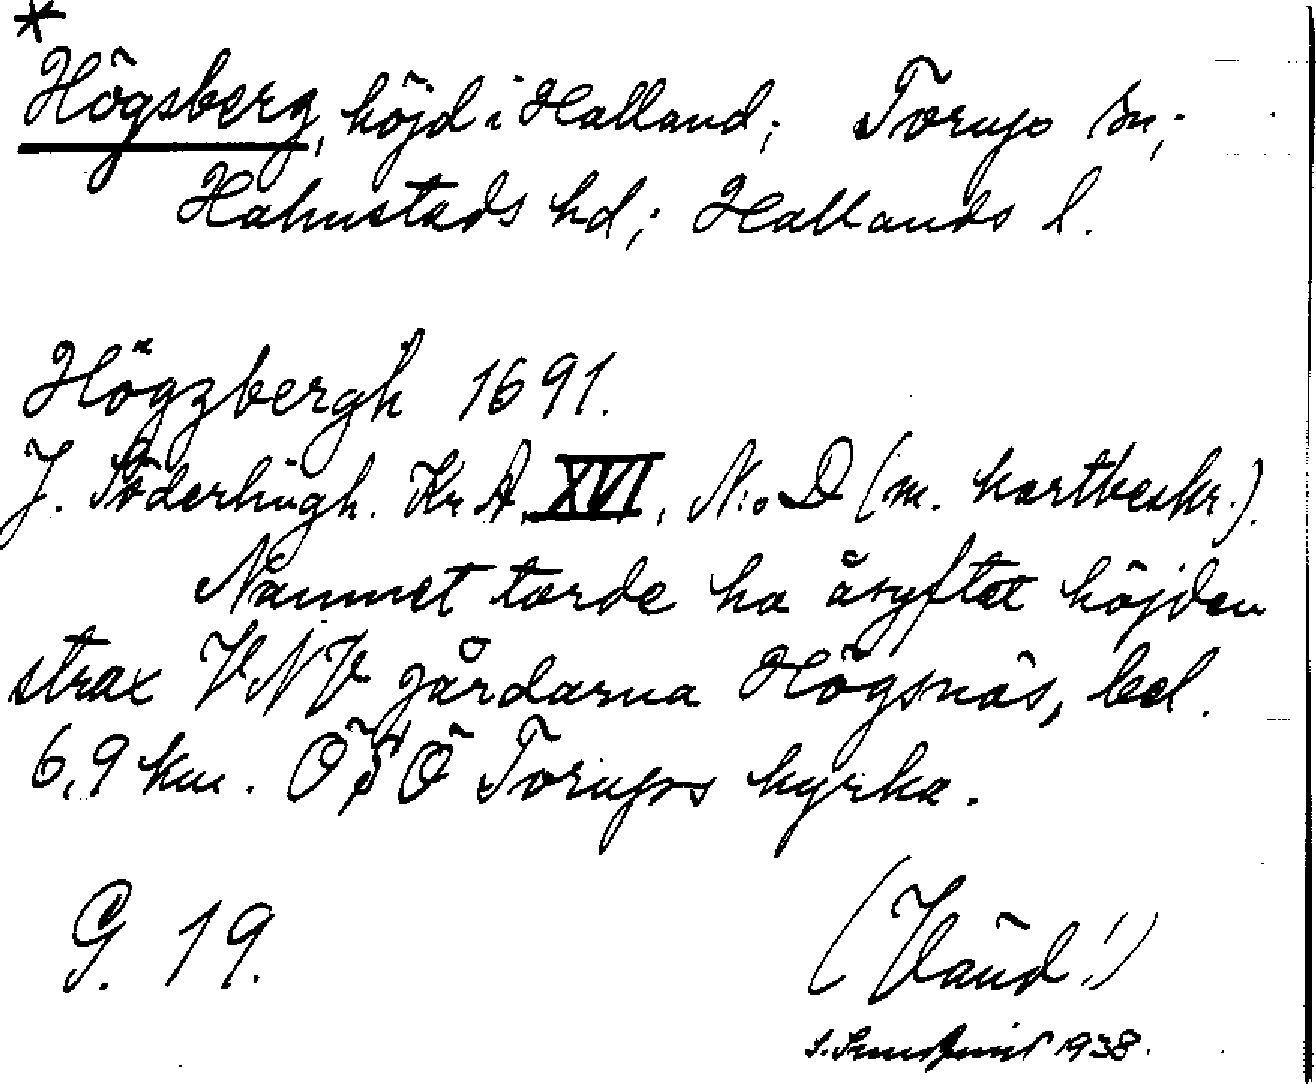 *
Högsberg, höjd i Halland; Torups sn;
Halmstads hd; Hallands l.
Högzbergh 1691.
J. Söderhiugh. Kr. A. XVI, N:o D (m. kartbeskr.).
Namnet torde ha åsyftat höjden
strax VNV gårdarna Högsnäs, bel.
6,9 km. ÖSÖ Torups kyrka.
G. 19.
(Vänd!)
1938.